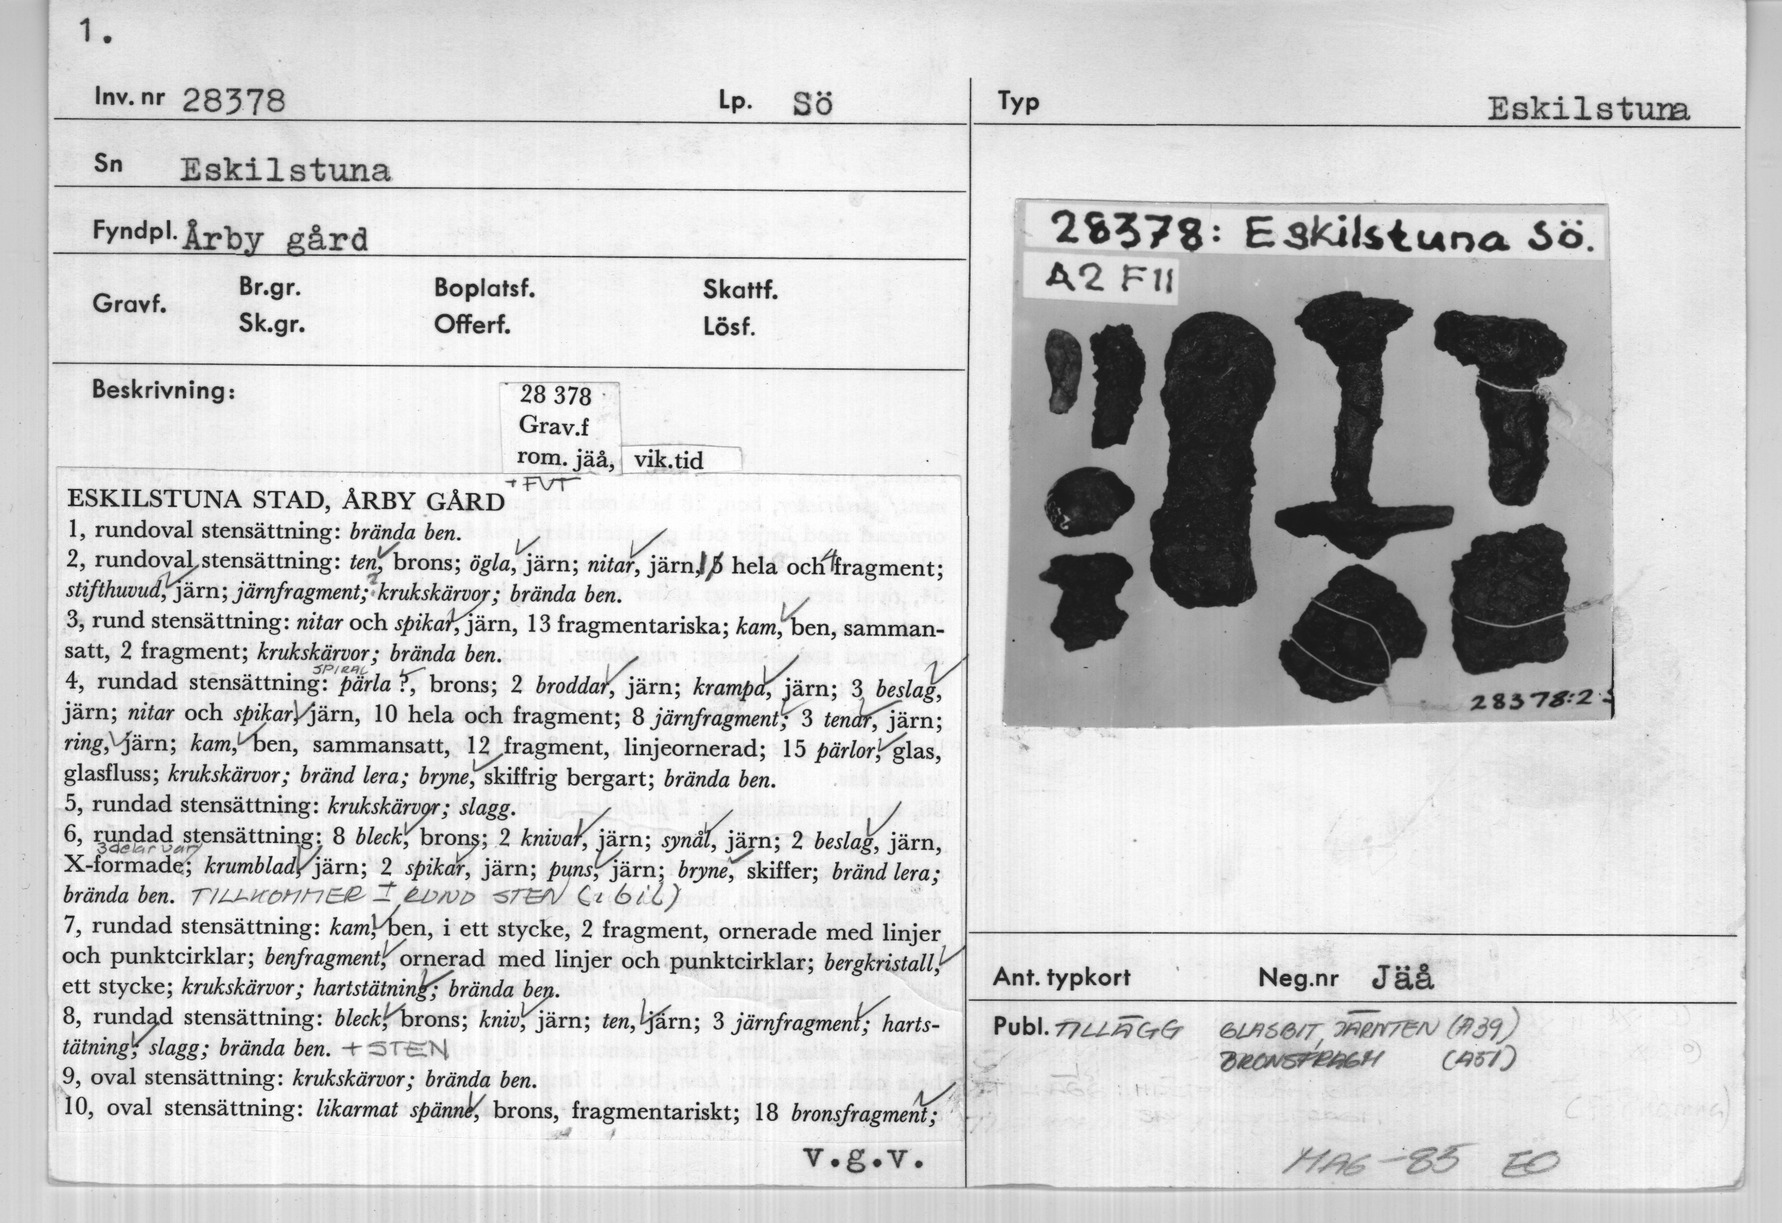 1.
Inv. nr 28378 Lp. Sö
Typ Eskilstuna
Sn Eskilstuna
Fyndpl. Årby gård
Gravf. Br.gr. Boplatsf. Skattf.
Sk.gr. Offerf. Lösf.
Beskrivning:
28 378
Grav.f
rom. jäå, vik.tid
+ FVT
ESKILSTUNA STAD, ÅRBY GÅRD
1, rundoval stensättning: brända ben.
2, rundoval stensättning: ten, brons; ögla, järn; nitar, järn, hela och 4 fragment;
stifthuvud, järn; järnfragment; krukskärvor; brända ben.
3, rund stensättning: nitar och spikar, järn, 13 fragmentariska; kam, ben, samman-
satt, 2 fragment; krukskärvor; brända ben.
SPIRAL
4, rundad stensättning: pärla ?, brons; 2 broddar, järn; krampa, järn; 3 beslag,
järn; nitar och spikar, järn, 10 hela och fragment; 8 järnfragment; 3 tenar, järn;
ring, järn; kam, ben, sammansatt, 12 fragment, linjeornerad; 15 pärlor, glas,
glasfluss; krukskärvor; bränd lera; bryne, skiffrig bergart; brända ben.
5, rundad stensättning: krukskärvor; slagg.
6, rundad stensättning: 8 bleck, brons; 2 knivar, järn; synål, järn; 2 beslag, järn,
3 delar var
X-formade; krumblad, järn; 2 spikar, järn; puns, järn; bryne, skiffer; bränd lera;
brända ben. TILLKOMMER 1 RUND STEN (1 bit)
7, rundad stensättning: kam, ben, i ett stycke, 2 fragment, ornerade med linjer
och punktcirklar; benfragment, ornerad med linjer och punktcirklar; bergkristall,
ett stycke; krukskärvor; hartstätning; brända ben.
8, rundad stensättning: bleck, brons; kniv, järn; ten, järn; 3 järnfragment; harts-
tätning; slagg; brända ben. + STEN
9, oval stensättning: krukskärvor; brända ben.
10, oval stensättning: likarmat spänne, brons, fragmentariskt; 18 bronsfragment;
v.g.v.
28378: Eskilstuna Sö.
A2 F11
28378:2
Ant. typkort Neg.nr Jäå
Publ. TILLÄGG GLASBIT, JÄRNTEN (A39)
BRONSFRAGM (A51)
MAG -85 EO